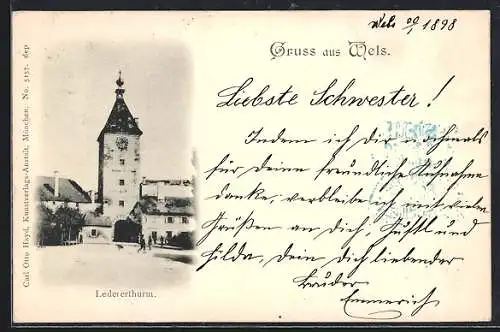 Wels 1898
Gruss aus Wels.
Liebste Schwester!
Indem ich dir nochmals
für deine freundliche Aufnahme
danke, verbleibe ich mit vielen
Grüßen an dich, Gustl und
Hilda, dein dich liebender
Bruder
Emmerich
Ledererthurm.
Carl Otto Hayd, Kunstverlags-Anstalt, München. No. 5157. dep